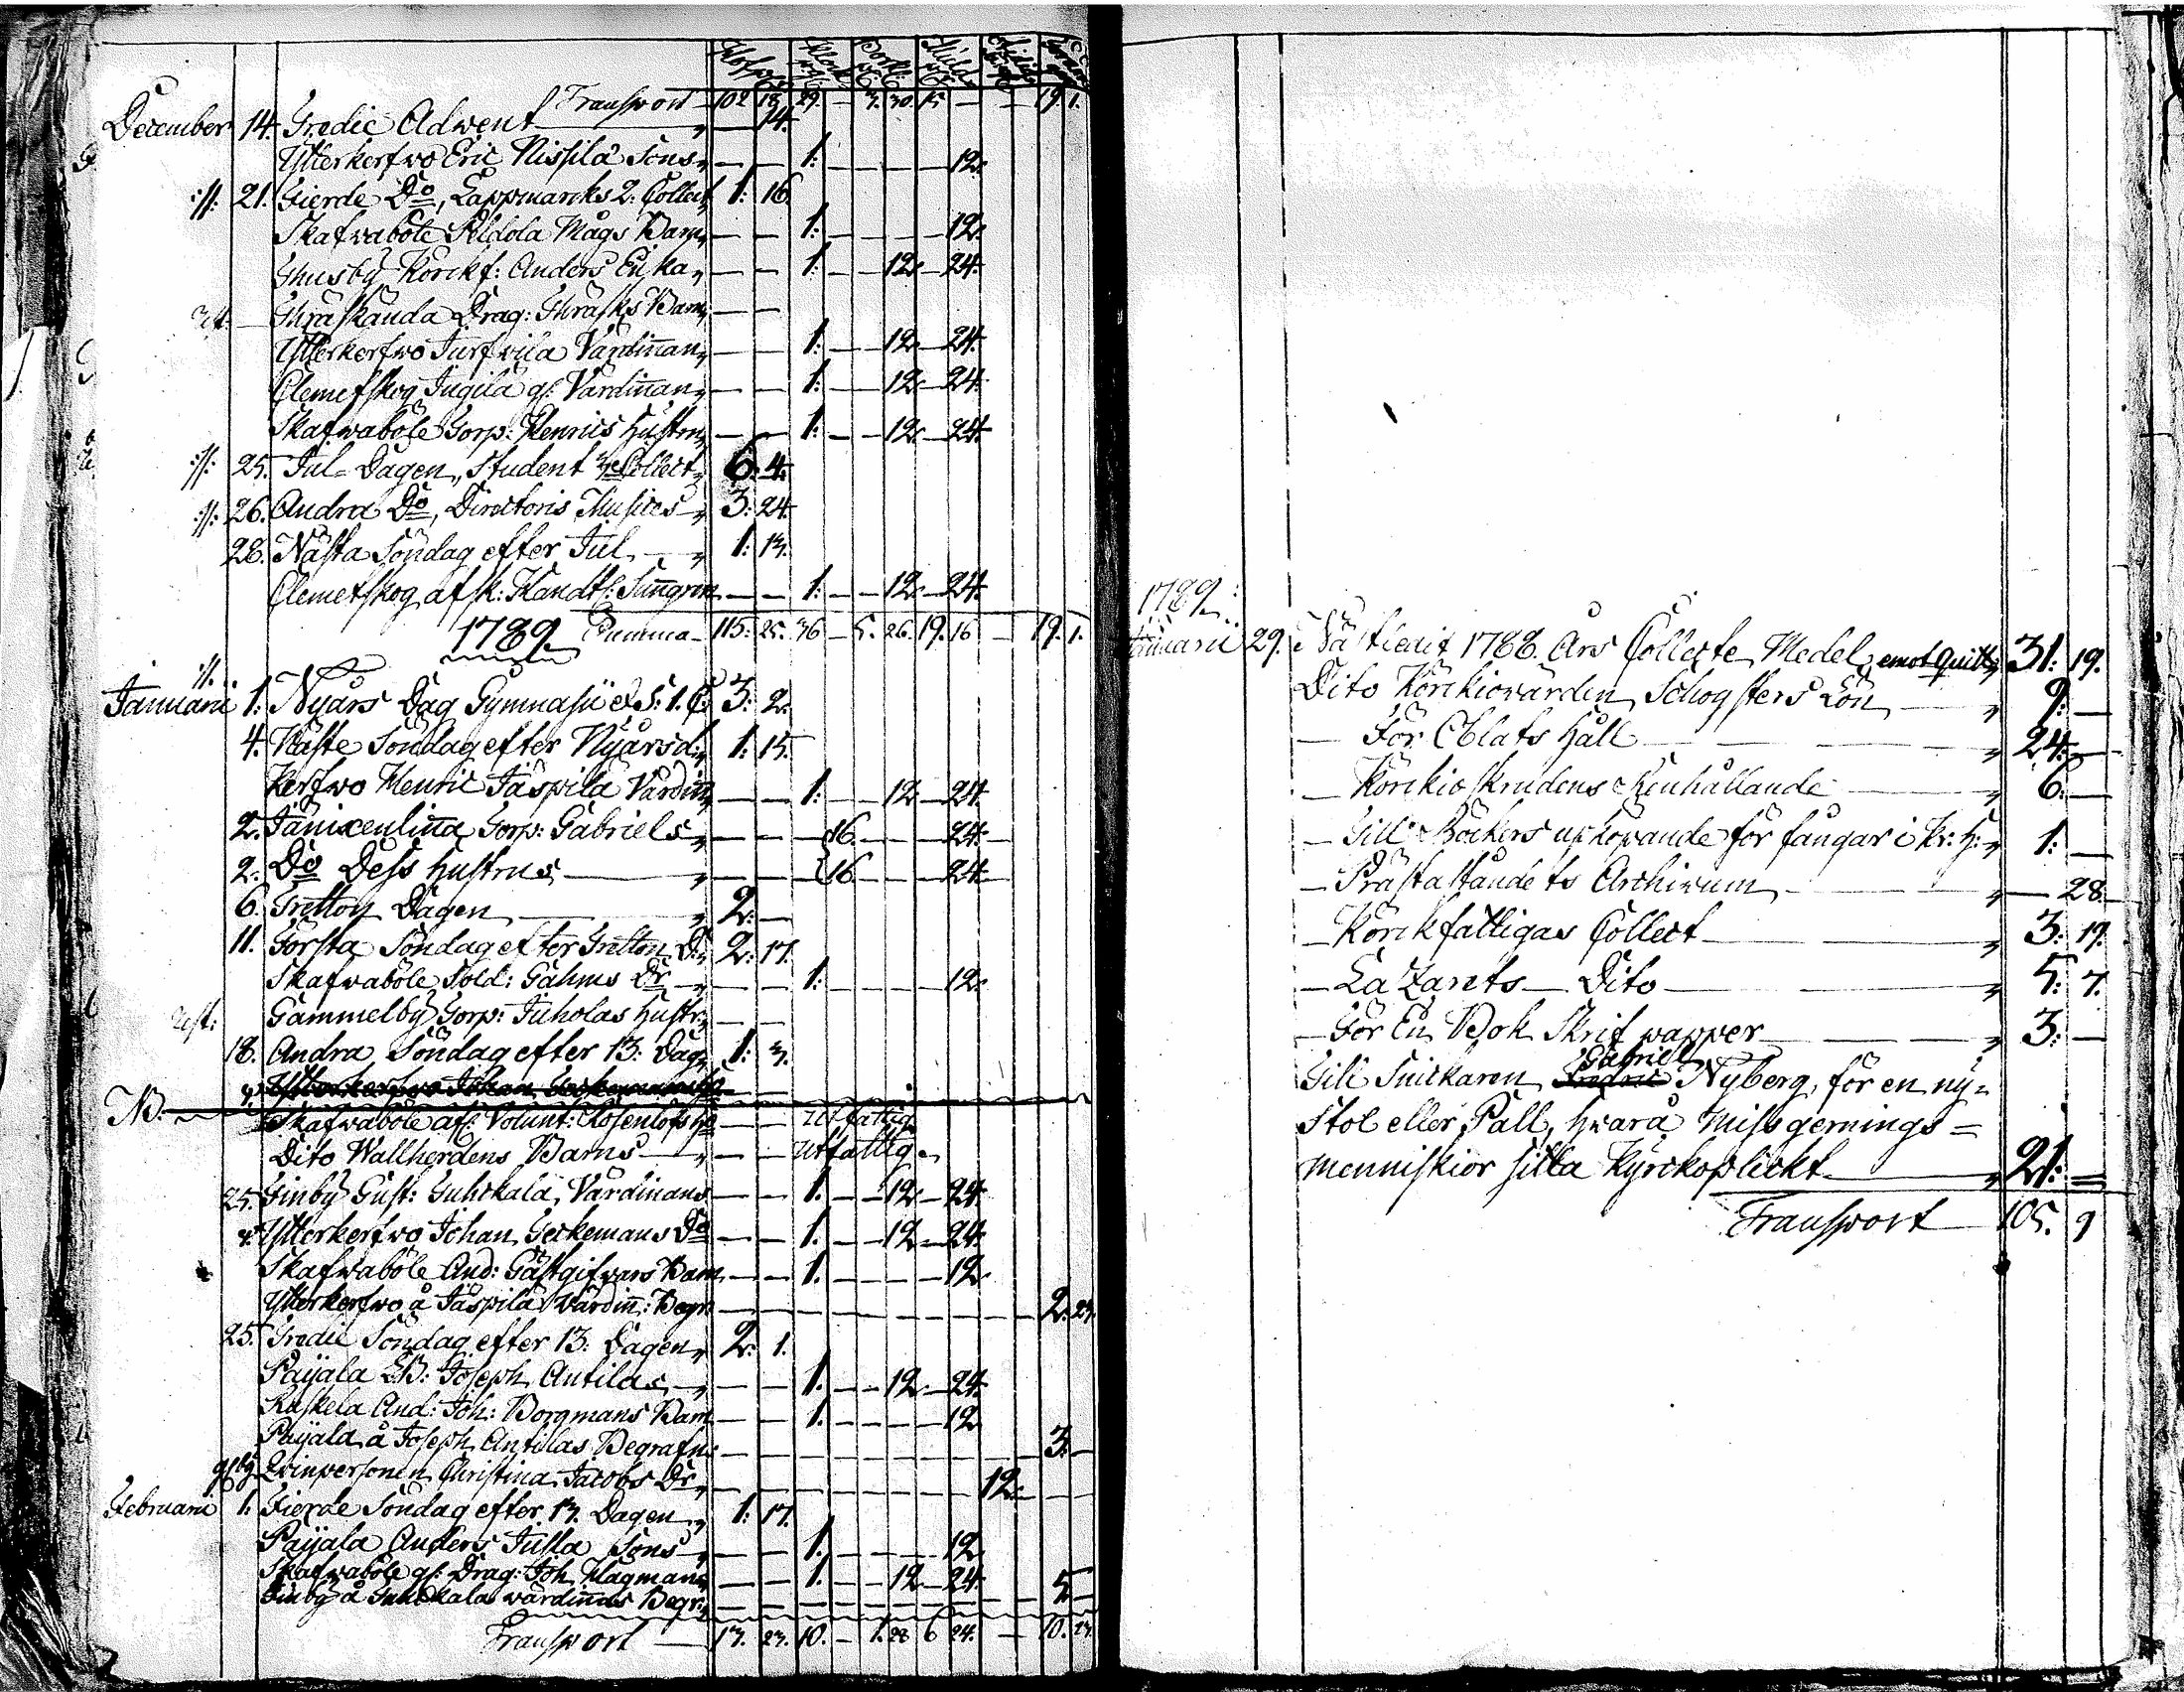 Transport 102 18 29. — 3. 30. 15 — — 19. 1.
December 14. Tredie Adwent „ — 14.
Ytterkerfwo Eric Nissilä Sons „ — — 1: — — — — 12.
:/: 21. Fierde Do, Lappmarcks 2: Collect 1: 16.
Skafwaböle Mågs Barn „ — — 1: — — — — 12.
Husby Körckf: Anders Enka „ — — 1: — — 12. — 24.
Träskända Drag: Barn „ — —
Ytterkerfwo Värdiñan „ — — 1: — — 12. — 24.
Clemetskog Jugila gl: Värdiñan „ — — 1: — — 12. — 24.
Skafwaböle Torp: Henrics Hustru „ — — 1: — — 12. — 24.
:/: 25. Jul-Dagen, Student Collect „ 6: 4.
:/: 26. Andra Do, Directoris Musices „ 3: 24.
28. Nästa Söndag efter Jul — „ 1: 13.
Clemetskog afsk: — — 1: — — 12. — 24.
1789. Summa 115: 25. 36 — 5. 26. 19. 16 — 19. 1.
:/:
Januarii 1: Nyårs Dag Gymnasii 3: 2.
4. Näste Söndag efter Nyårsd: „ 1: 15.
Kerfwo Henric Jäspilä Värdiñ „ — — 1: — — 12. — 24.
2. Torp: Gabriels „ — — — 16. — — — 24. —
2. Do Dess Hustrus „ — — — 16. — — — 24. —
6. Tretton Dagen „ 2: —
11. Första Söndag efter Tretton D: „ 2: 17.
Skafwaböle Sold: Dr „ — — 1: — — — — 12.
Rest: Gammelby Torp: Juholas Hustr: — —
18. Andra Söndag efter 13: Dag „ 1: 3.
NB. Ytterkerfwo Johan
Skafwaböle afl: Volunt: Rosenlöfs — — Utfattig
Dito Wallherdens Barns — „ — — Utfattig.
25. Finby Gust: Värdiñans — — 1. — — 12. — 24.
Ytterkerfwo Johan Do — — 1. — — 12. — 24.
Skafwaböle And: Gästgifvars Barn — — 1. — — — — 12.
Ytterkerfwo å Jäspilä Värdiñ: Begr: — 2. 23.
25. Tredie Söndag efter 13: Dagen „ 2: 1.
Paijala Joseph Antilas „ — — 1. — — 12. — 24.
Ruskela And: Joh: Borgmans Barn — — 1. — — — — 12
Paijala å Joseph Antilas Begrafn: — 3: —
Qvinpersonen Christina Jacobs Dr „ — 12. —
Februarii 1: Fierde Söndag efter 13. Dagen „ 1: 17.
Paijala Anders Jussila Sons „ — — 1. — — — — 12
Skafwaböle gl: Drag: Joh. Hagmans — — 1. — — 12. — 24.
Finby å Värdiñas Begr: „ — 5. —
Transport — 13. 23. 10. — 1. 28 6 24. — 10. 23.
1789.
Januarii 29. Nästledit 1788. Års Collecte Medel, emot Quitt „ 31: 19.
Dito Körckiowärden Schogsters Lön „ 9: —
— För Oblats Håll „ 24. —
— Körckioskrudens Renhållande „ 6: —
— Till Böckers uphöpande för fångar i Kr: H: „ 1: —
— Prästaståndets Archivum „ — 28.
— Körckfattigas Collect „ 3: 17.
— Lazarets — Dito „ 5: 7.
— För En Bok Skrifpapper „ 3: —
Gabriel
Till Snickaren Fredric Nyberg, för en ny-
Stol eller Pall, hvarå Missgernings=
menniskior sitta Kyrckoplickt „ 21: =
Transport 105. 9